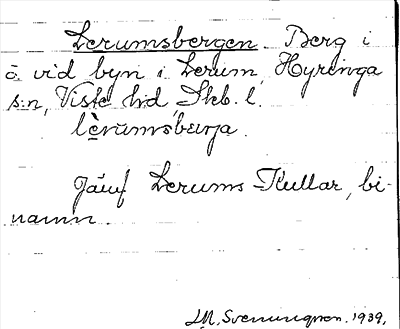 Lerumsbergen. Berg i
ö. vid byn i Lerum, Hyringa
s:n, Viste hd, Skb. l.
lèrumsbærja.
Jämf Lerums-Kullar, bi-
namn.
Svenungsson. 1939.